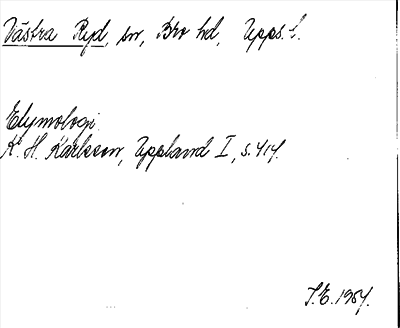 Västra Ryd, sn, Bro hd, Upps. l.
Etymologi.
K. H. Karlsson, Uppland I, s. 414.
T.E. 1957.